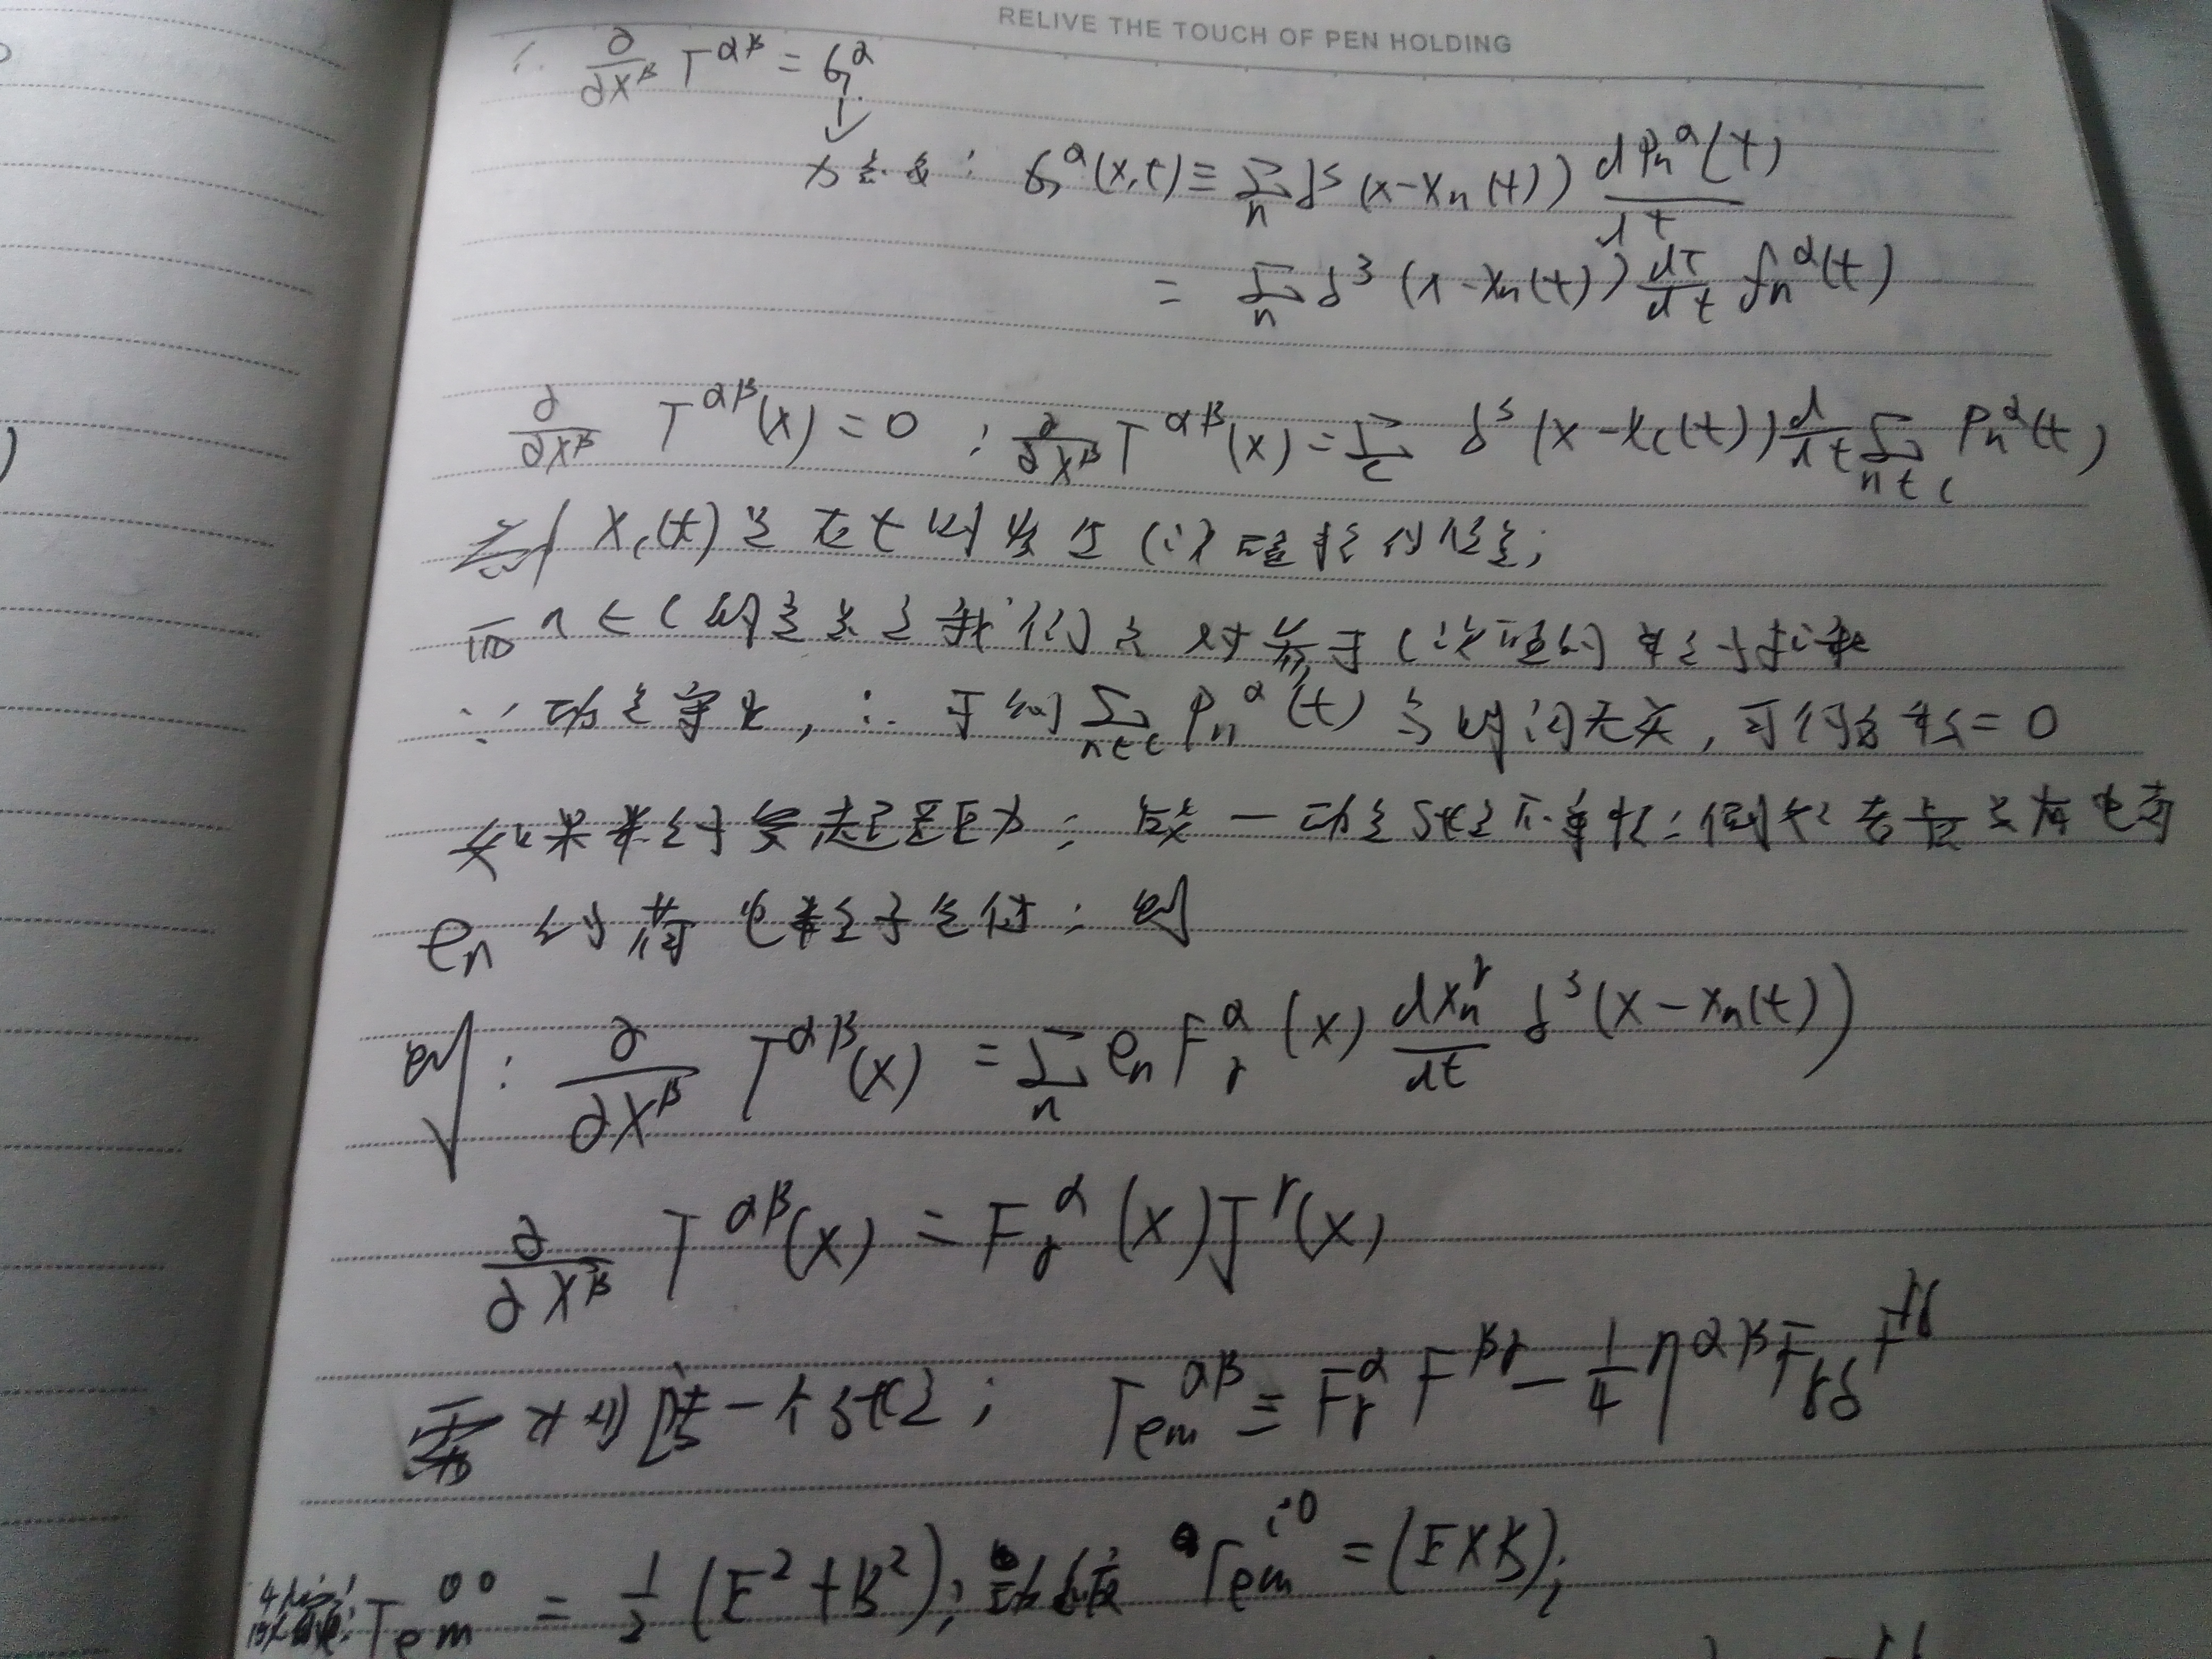 RELIVE THE TOUCH OF PEN HOLDING
∴ ∂/∂x^β T^{αβ} = G^α
力密度: G^α(x,t) ≡ Σ_n δ^3(x-x_n(t)) dp_n^α(t)/dt
= Σ_n δ^3(x-x_n(t)) dτ/dt f_n^α(t)
∂/∂x^β T^{αβ}(x) = 0 ; ∂/∂x^β T^{αβ}(x) = Σ_c δ^3(x-x_c(t)) d/dt Σ_{n∈c} p_n^α(t)
x_c(t)是在t时发生c次碰撞的位置;
而n∈c的意义是我们只对参于c次碰的粒子求和
∵动量守恒, ∴于初Σ_{n∈c} p_n^α(t)与时间无关, 可得 = 0
如果粒子受 力: 一动量 不守恒: 例如 考虑具有电荷
e_n的荷电粒子气体: 则
则: ∂/∂x^β T^{αβ}(x) = Σ_n e_n F^α_γ(x) dx_n^γ/dt δ^3(x-x_n(t))
∂/∂x^β T^{αβ}(x) = F^α_γ(x) J^γ(x)
一个 ; T_em^{αβ} ≡ F^α_γ F^{βγ} - 1/4 η^{αβ} F_{γδ} F^{γδ}
T_em^{00} = 1/2 (E^2+B^2); T_em^{i0} = (E×B)_i